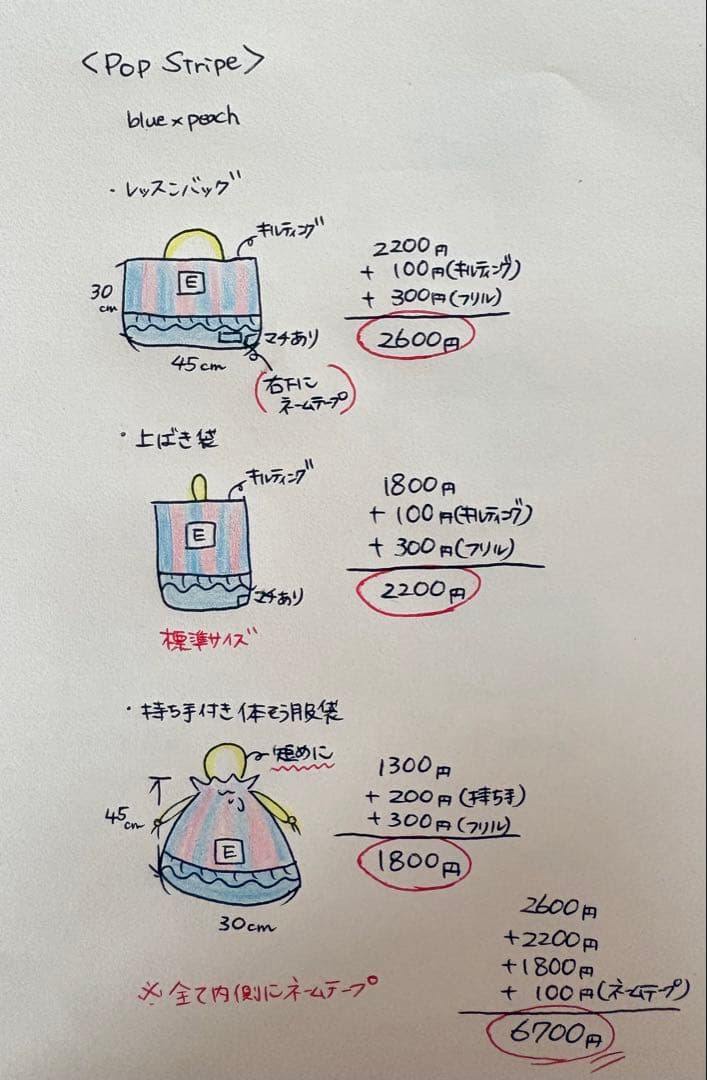 <Pop Stripe>
blue×peach
・レッスンバッグ
キルティング
30cm
E
マチあり
45cm
(右下にネームテープ)
2200円
+ 100円(キルティング)
+ 300円(フリル)
2600円
・上ばき袋
キルティング
E
マチあり
標準サイズ
1800円
+ 100円(キルティング)
+ 300円(フリル)
2200円
・持ち手付き体そう服袋
短めに
45cm
E
30cm
1300円
+ 200円(持ち手)
+ 300円(フリル)
1800円
※全て内側にネームテープ
2600円
+2200円
+1800円
+ 100円(ネームテープ)
6700円